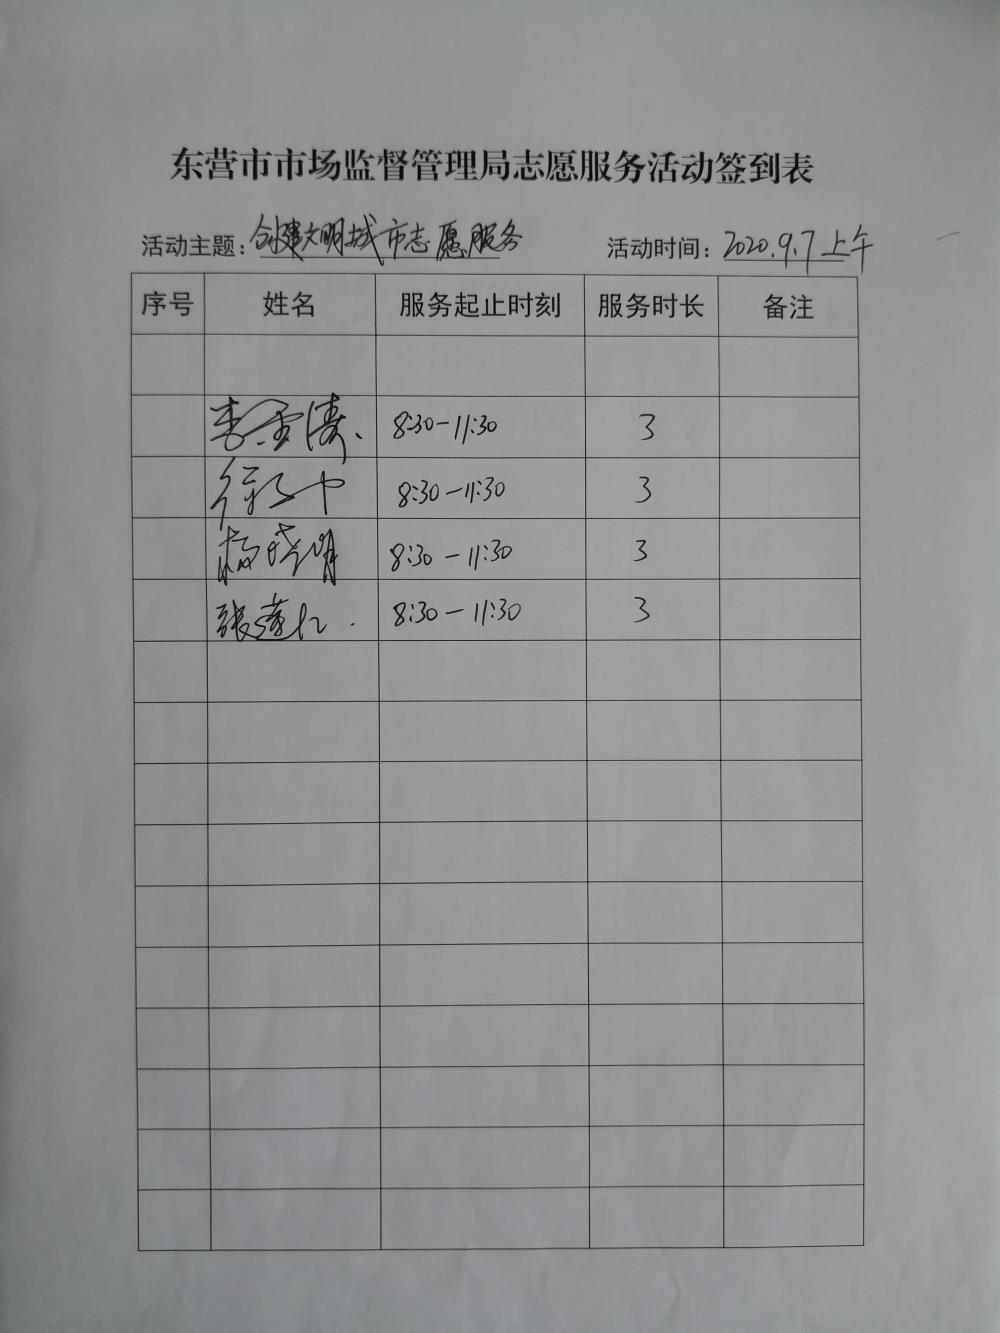 东营市市场监督管理局志愿服务活动签到表
活动主题：创建文明城市志愿服务 活动时间：2020.9.7上午
序号 姓名 服务起止时刻 服务时长 备注
李金涛 8:30-11:30 3
徐 8:30-11:30 3
杨晓明 8:30-11:30 3
张莲仁 8:30-11:30 3